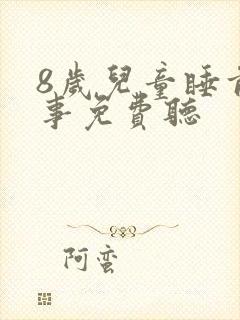 8歲兒童睡前
事免費聽
阿蛮